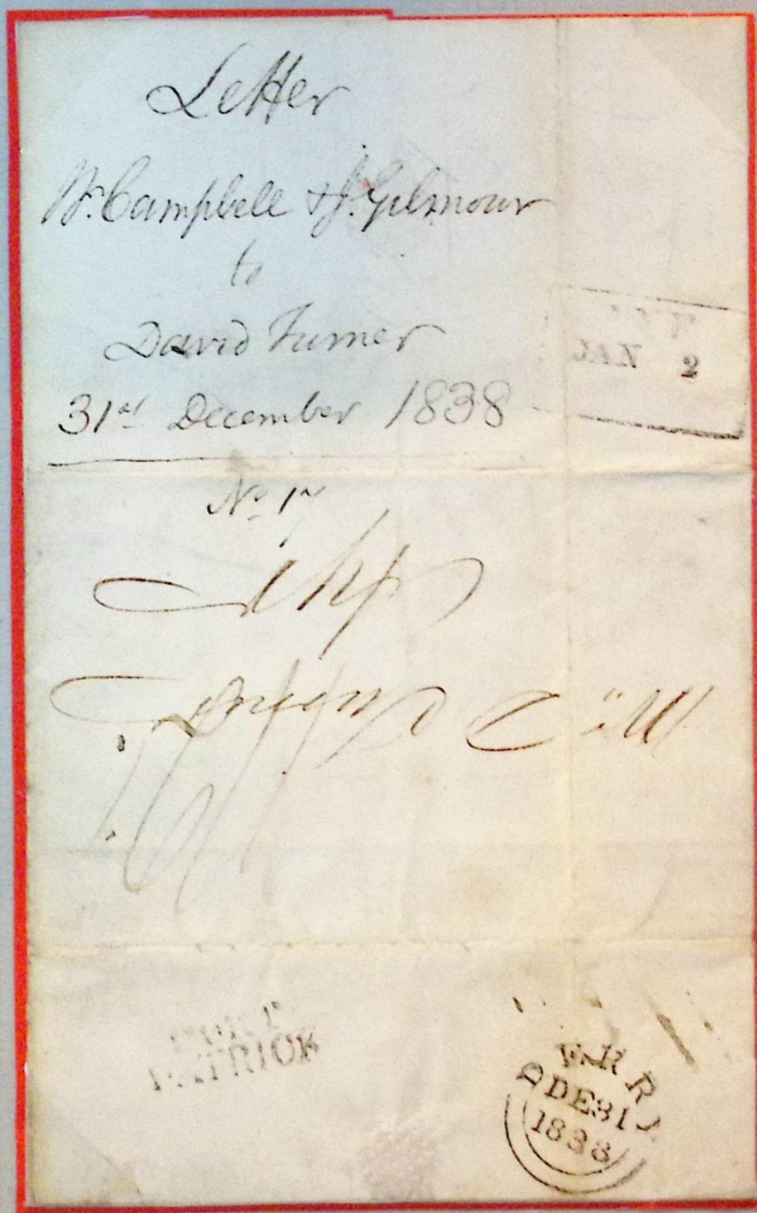 Letter
Wm. Campbell & J. Gilmour
to
David Turner
31st December 1838
JAN 2
No 17
Ayr
Mr D
PORT
PATRICK
DERRY
DE 31
1838